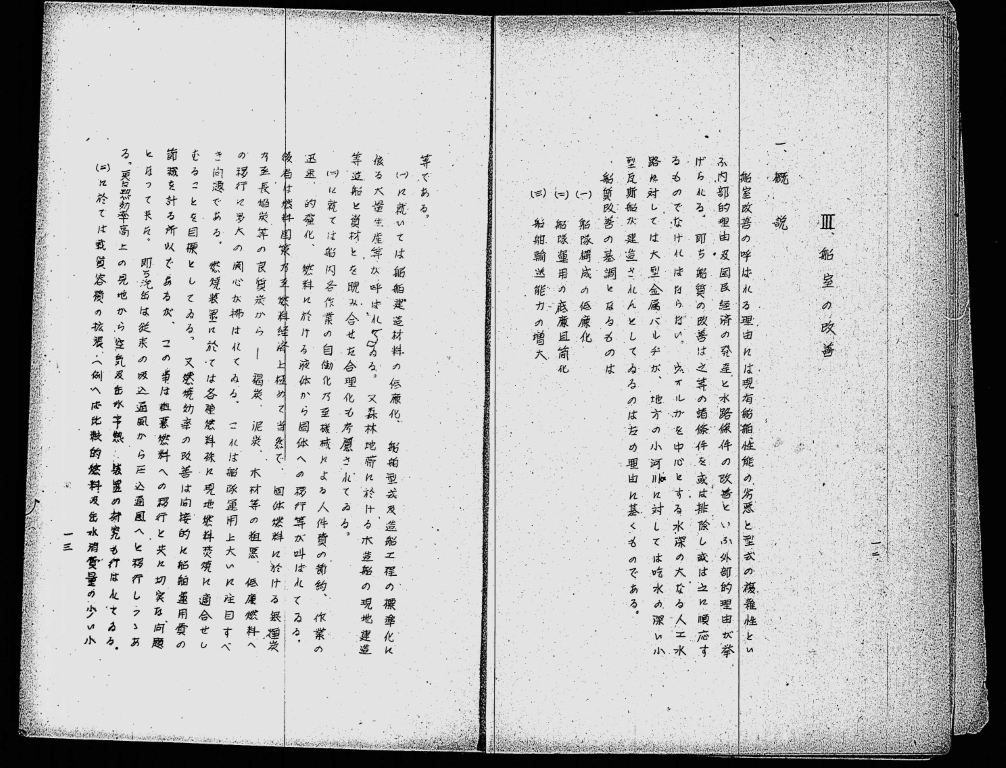 Ⅲ、船室の改善
一、概説
船室改善の呼ばれる理由には現有船舶性能の劣悪と型式の複雑性とい
ふ内部的理由及国民経済の発達と水路條件の改善といふ外部的理由が挙
げられる。即ち船質の改善は之等の諸條件を或は排除し或は之に順応す
るものでなければならない。ヴォルガを中心とする水深の大なる人工水
路に対しては大型金属バルヂが、地方の小河川に対しては吃水の深い小
型瓦斯船が建造されんとしてゐるのはこの理由に基くものである。
船質改善の基調となるものは
(一) 船隊構成の低廉化
(二) 船隊運用の低廉且簡化
(三) 船舶輸送能力の増大
一二
等である。
(一)に就いては船舶建造材料の低廉化、船舶型式及造船工程の標準化に
依る大量生産等が呼ばれてゐる。又森林地帯に於ける木造船の現地建造
等造船と資材とを睨み合せた合理化も考慮されてゐる。
(二)に就ては船内各作業の自働化乃至機械による人件費の節約、作業の
迅速、的確化、燃料に於ける液体から固体への移行等が叫ばれてゐる。
後者は燃料国策乃至燃料経済上極めて当然で、固体燃料に於ける無煙炭
乃至長焔炭等の良質炭から―褐炭、泥炭、木材等の粗悪、低廉燃料へ
の移行に多大の関心が拂はれてゐる。これは船隊運用上大いに注目すべ
き問題である。燃焼装置に於ては各種燃料殊に現地燃料焚焼に適合せし
むることを目標としてゐる。又燃焼効率の改善は間接的に船舶運用費の
節減を計る所以であるが、この事は粗悪燃料への移行と共に切実な問題
となつて来た。即ち汽缶は従来の吸込通風から圧込通風へと移行しつゝあ
る。更に熱効率高上の見地から空気及缶水予熱装置の研究も行はれてゐる。
(三)に於ては載貨容積の拡張、へ例へば比較的燃料及缶水消費量の少い小
一三